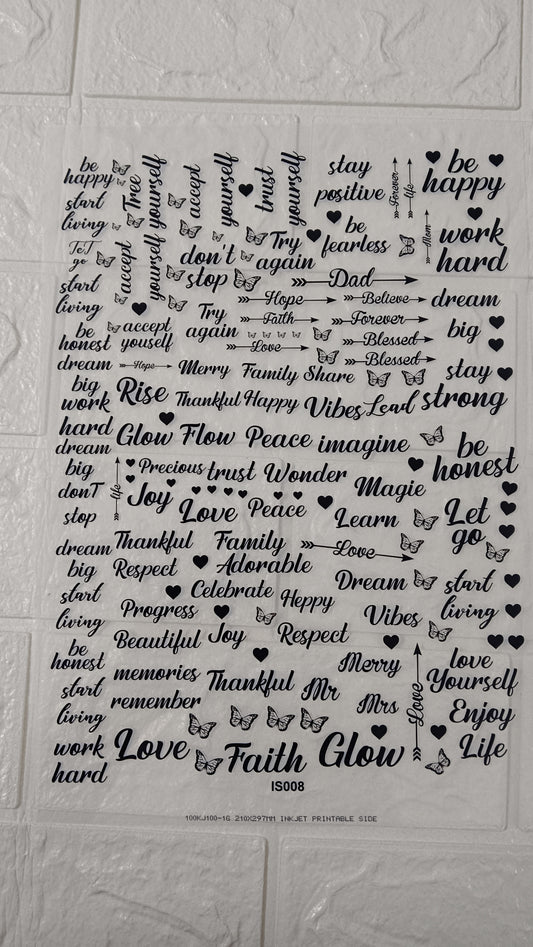 be
happy
start
living
Tree
yourself
accept
yourself
trust
yourself
stay
positive
Forever
life
be
happy
ToT
go
accept
yourself
don't
stop
Try
again
be
fearless
Mom
work
hard
start
living
Dad
Hope
Believe
dream
be
honest
accept
youself
Try
again
Faith
Forever
big
Love
Blessed
dream
Hope
Merry
Family
Share
Blessed
stay
strong
big
work
hard
Rise
Thankful
Happy
Vibes
Lead
Glow
Flow
Peace
imagine
be
honest
dream
big
donT
stop
life
Precious
trust
Wonder
Magie
Joy
Love
Peace
Learn
Let
go
dream
big
start
living
Thankful
Family
Love
Respect
Adorable
Celebrate
Heppy
Dream
start
living
Progress
Vibes
be
honest
Beautiful
Joy
Respect
Merry
Love
love
Yourself
start
living
memories
remember
Thankful
Mr
Mrs
Enjoy
Life
work
hard
Love
Faith
Glow
IS008
100KJ100-1G 210X297MM INKJET PRINTABLE SIDE